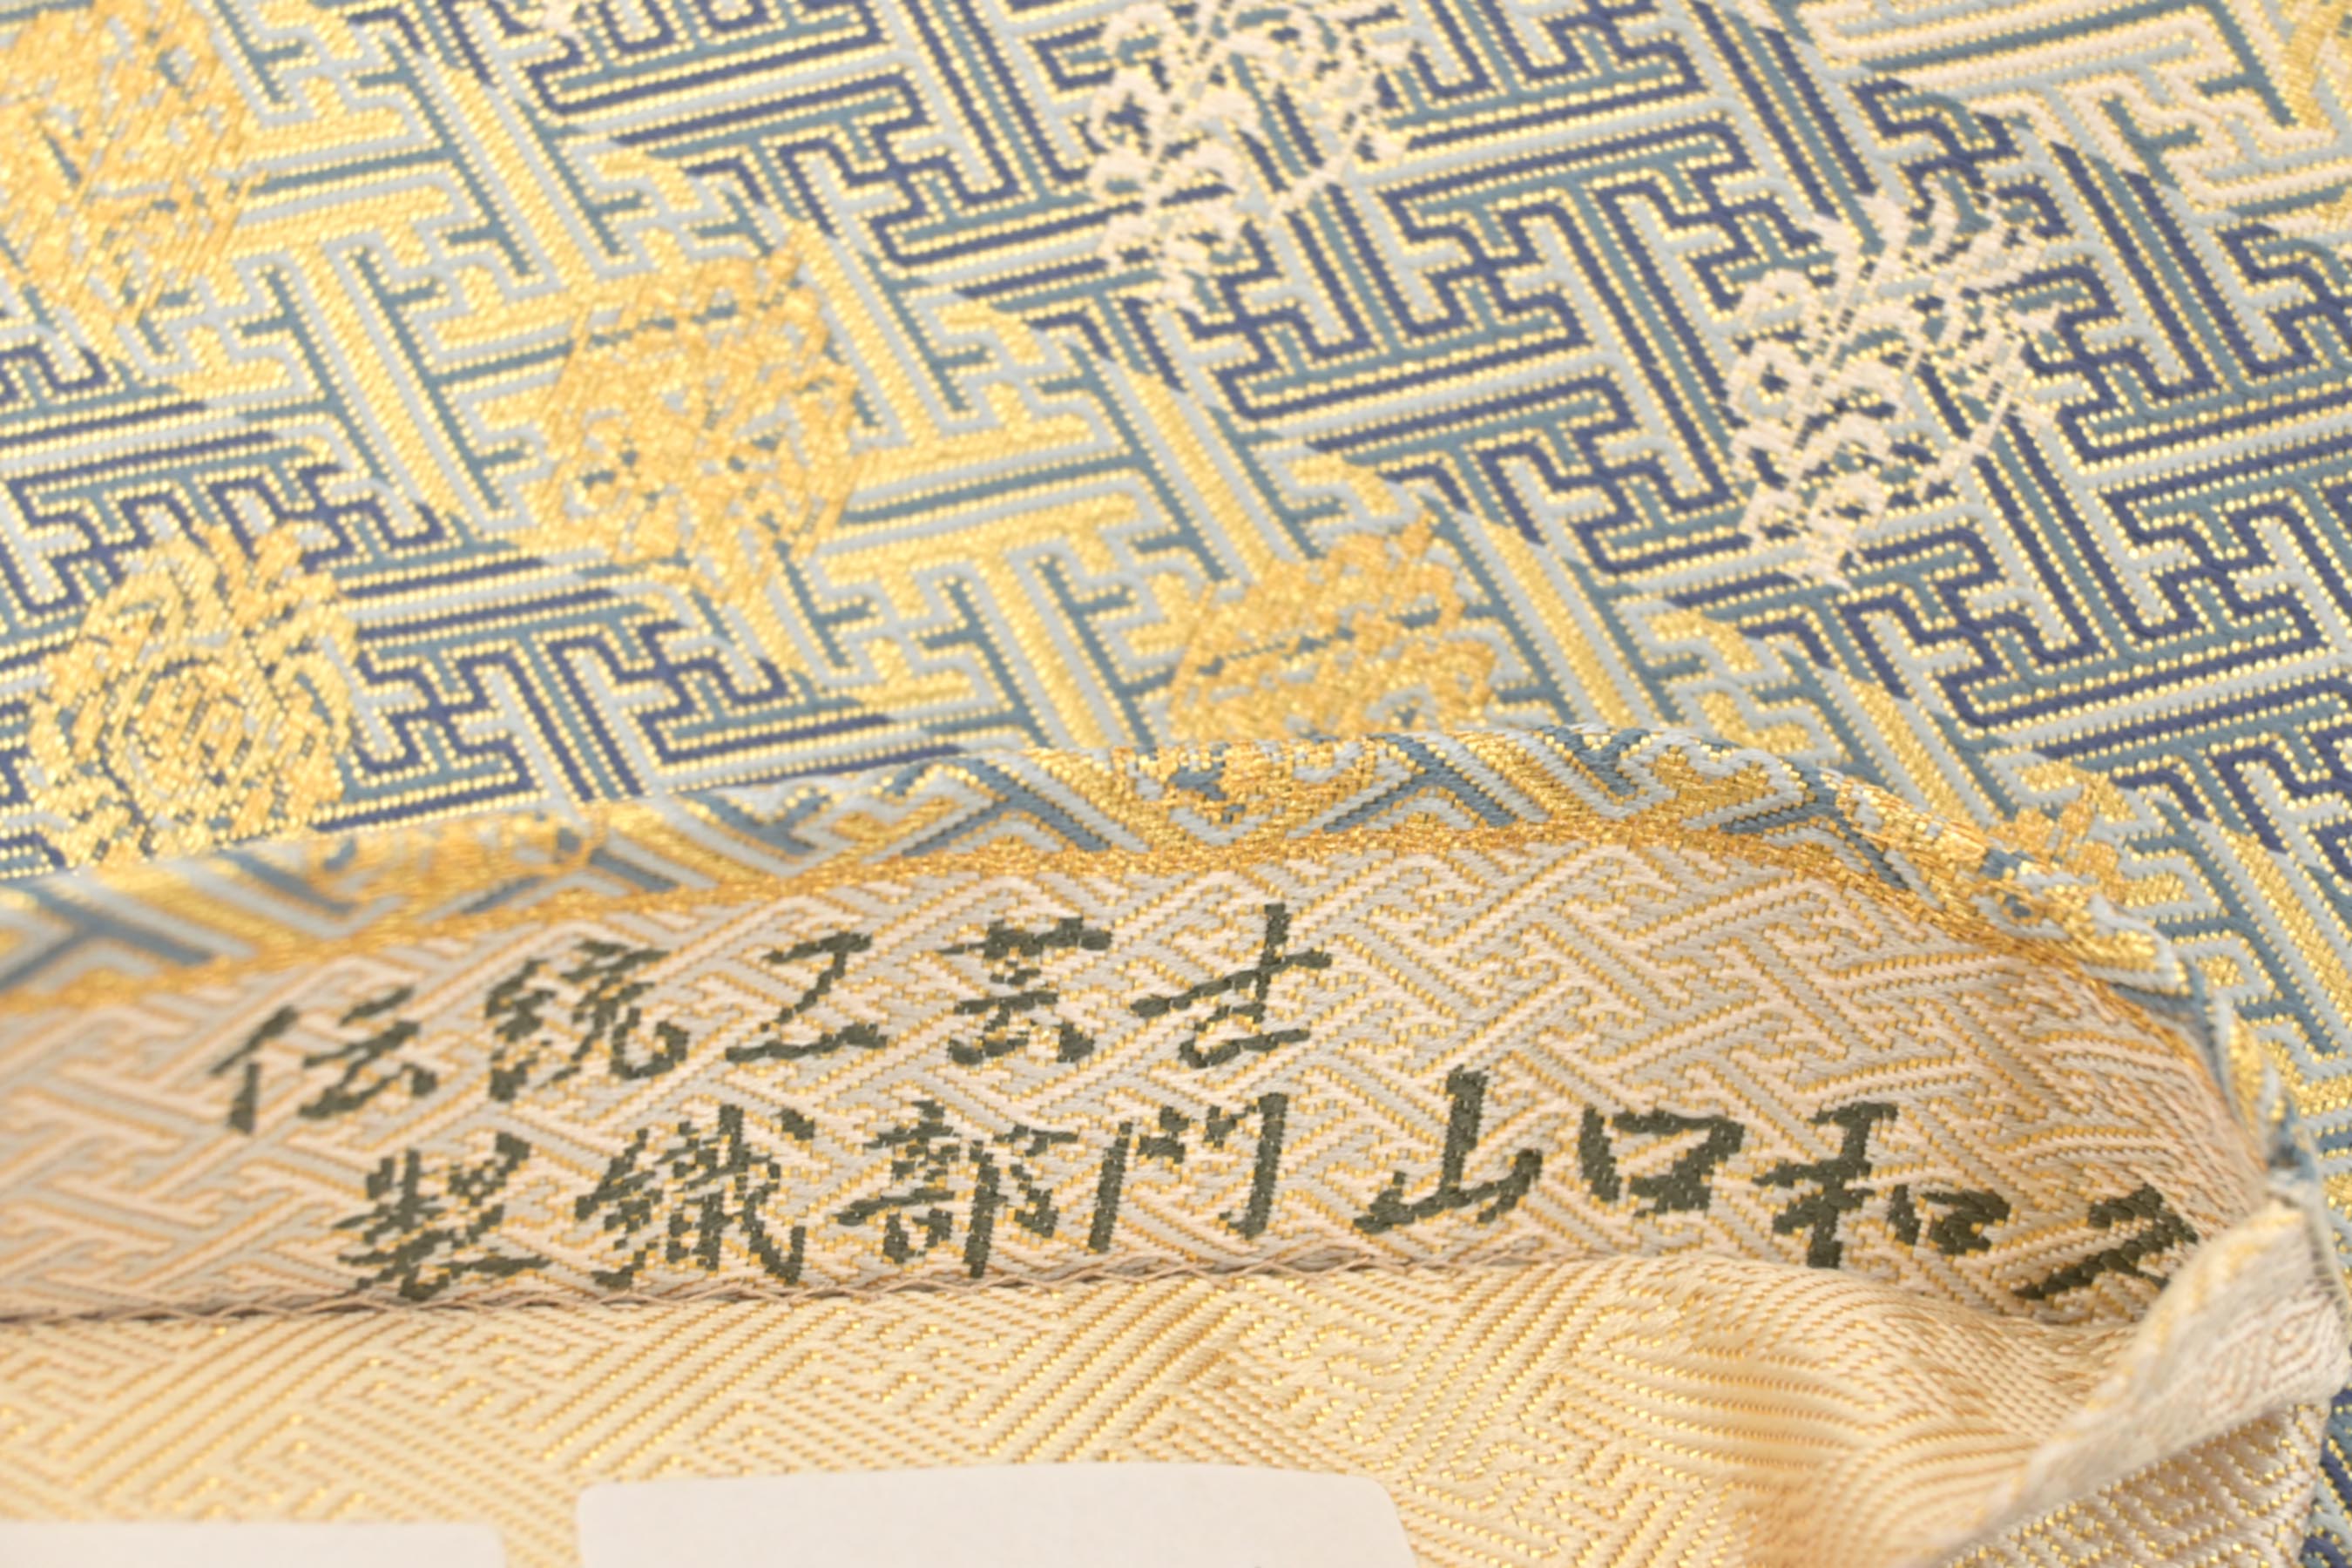 伝統工芸士
製織部門 山口和